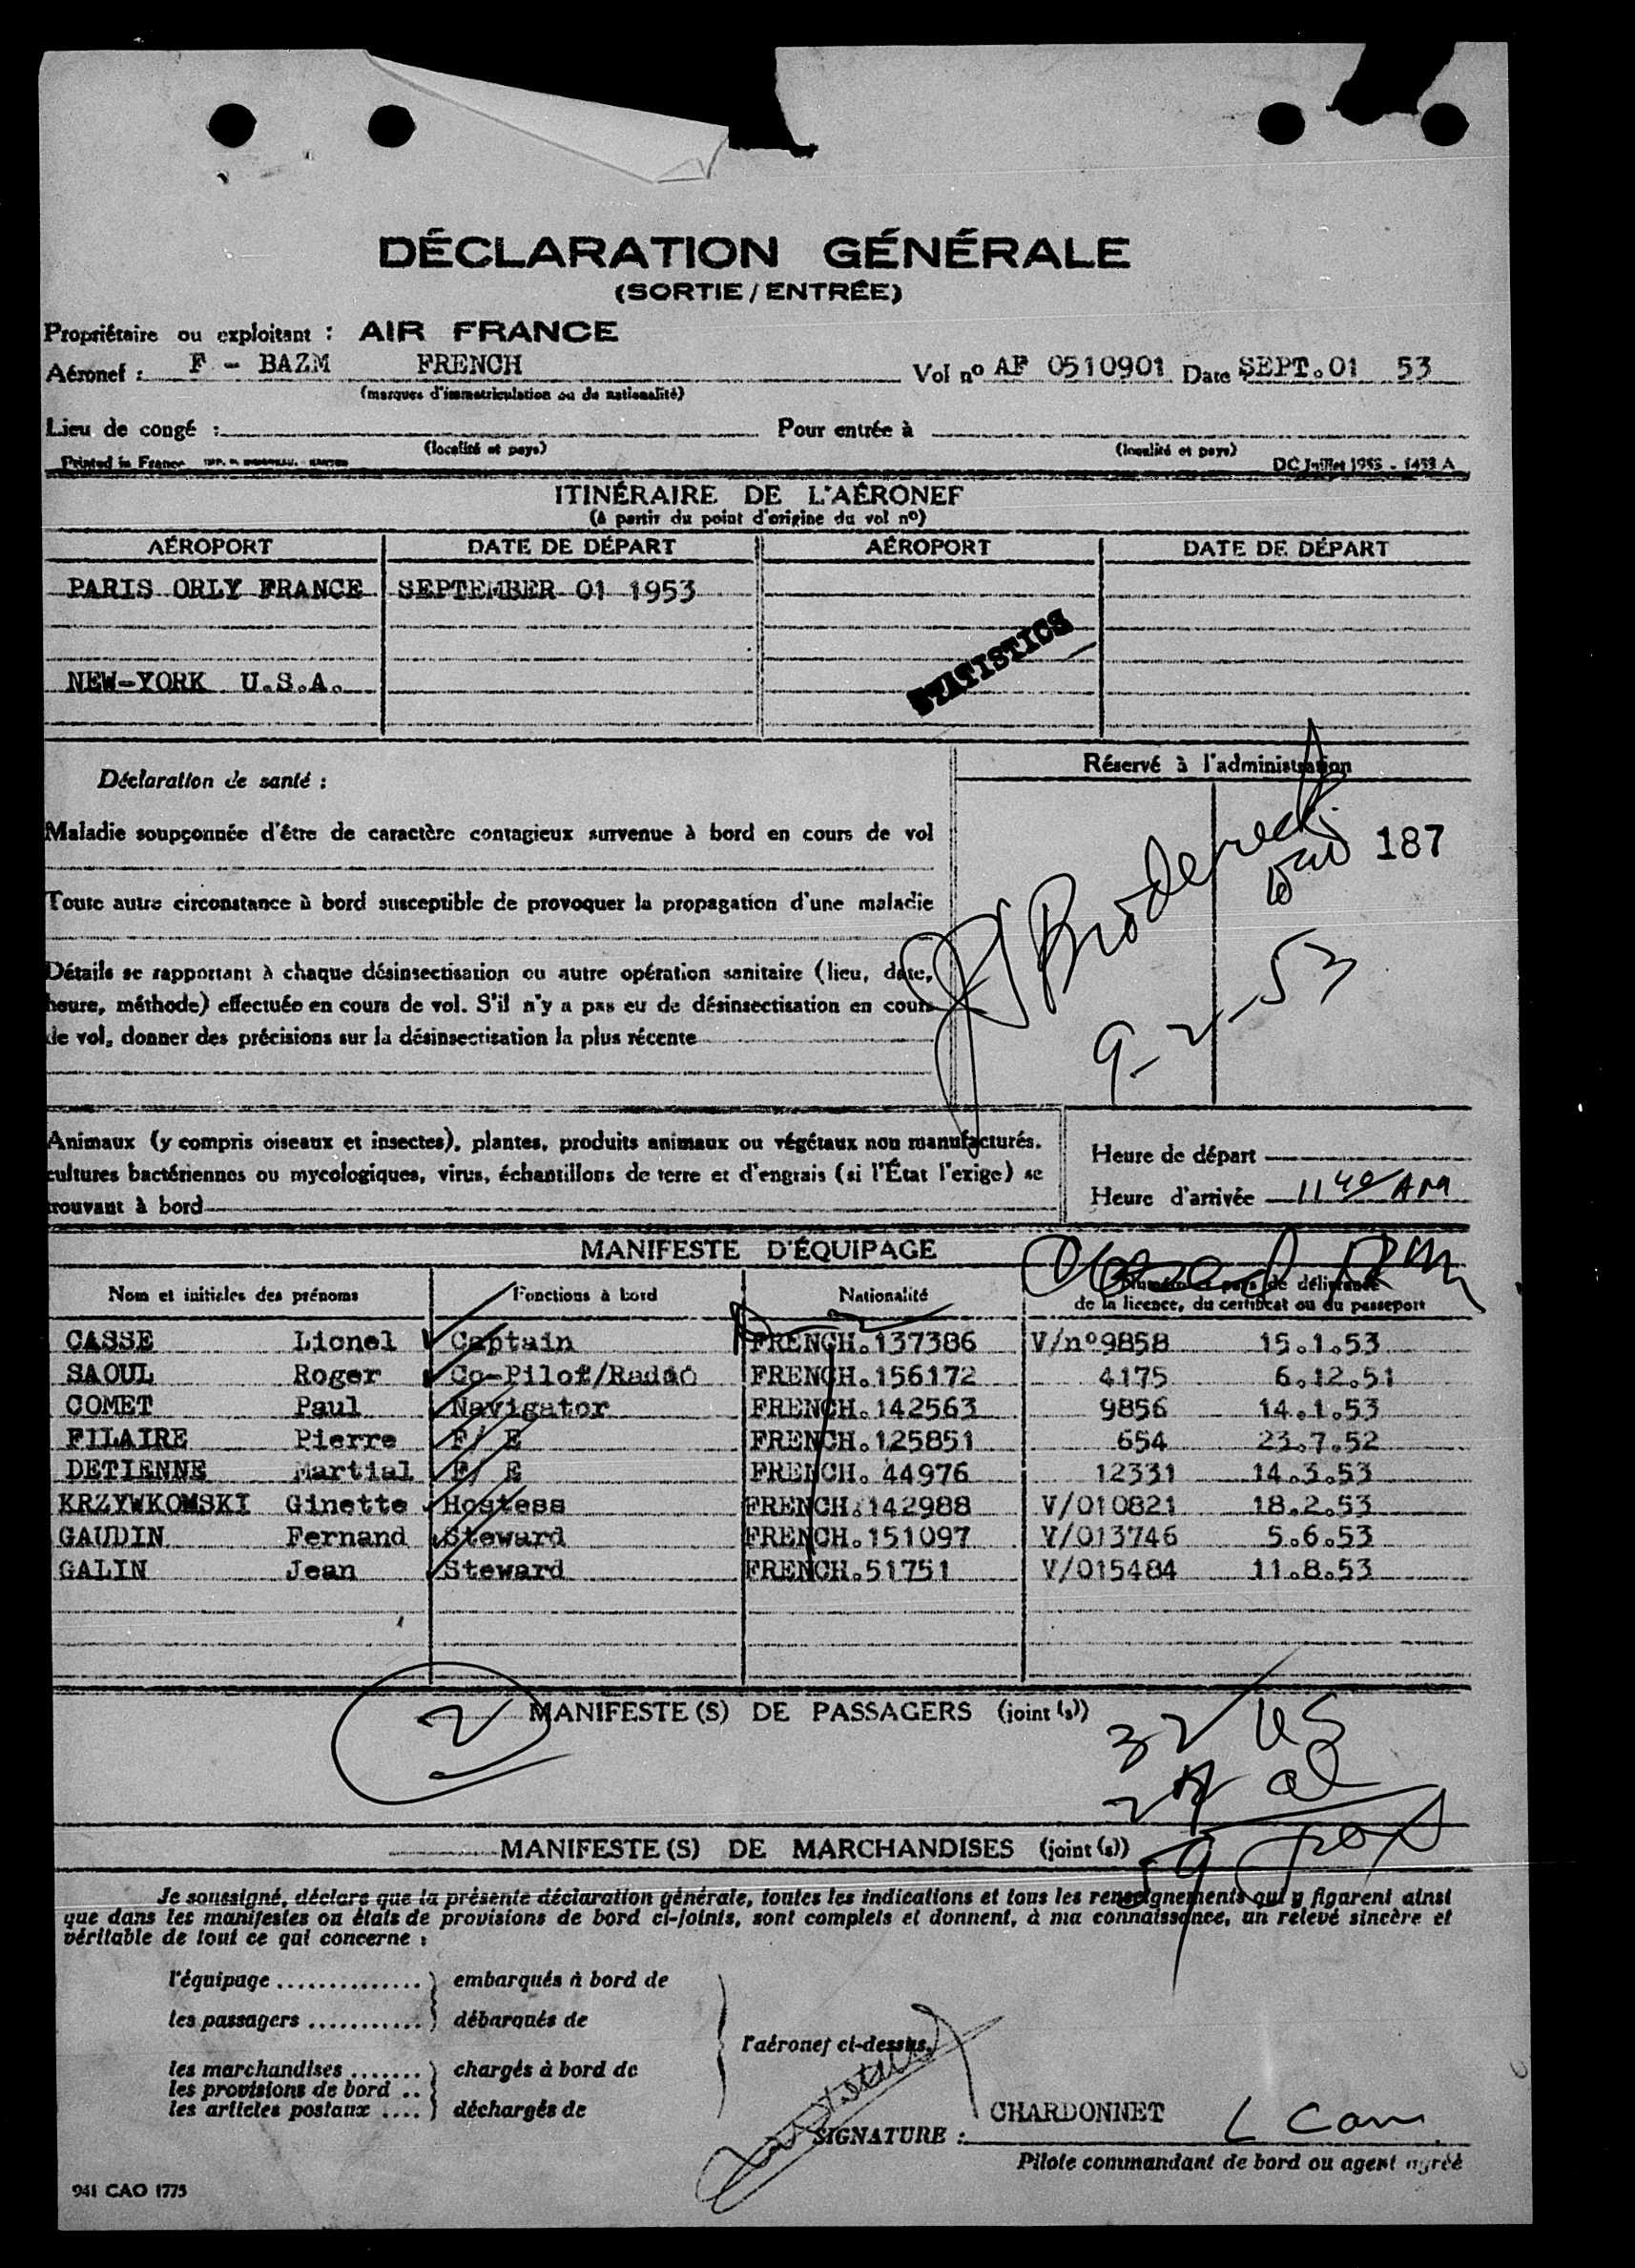 DÉCLARATION GÉNÉRALE
(SORTIE / ENTRÉE)
Propriétaire ou exploitant : AIR FRANCE
Aéronef : F - BAZM FRENCH Vol nº AF 0510901 Date SEPT.01 53
(marques d'immatriculation ou de nationalité)
Lieu de congé : Pour entrée à
(localité et pays) (localité et pays)
Printed in France DC Juillet 1953 - 1453 A
ITINÉRAIRE DE L'AÉRONEF
(à partir du point d'origine du vol nº)
AÉROPORT DATE DE DÉPART AÉROPORT DATE DE DÉPART
PARIS ORLY FRANCE SEPTEMBER 01 1953
STATISTICS
NEW-YORK U.S.A.
Réservé à l'administration
Déclaration de santé :
Maladie soupçonnée d'être de caractère contagieux survenue à bord en cours de vol
187
Toute autre circonstance à bord susceptible de provoquer la propagation d'une maladie
Détails se rapportant à chaque désinsectisation ou autre opération sanitaire (lieu, date,
heure, méthode) effectuée en cours de vol. S'il n'y a pas eu de désinsectisation en cours
de vol, donner des précisions sur la désinsectisation la plus récente
9-2-53
Animaux (y compris oiseaux et insectes), plantes, produits animaux ou végétaux non manufacturés.
cultures bactériennes ou mycologiques, virus, échantillons de terre et d'engrais (si l'État l'exige) se
trouvant à bord
Heure de départ
Heure d'arrivée 11 40 AM
MANIFESTE D'ÉQUIPAGE
Nom et initiales des prénoms Fonctions à bord Nationalité Numéro et pays de délivrance
de la licence, du certificat ou du passeport
CASSE Lionel Captain FRENCH.137386 V/nº9858 15.1.53
SAOUL Roger Co-Pilot/Radio FRENCH.156172 4175 6.12.51
COMET Paul Navigator FRENCH.142563 9856 14.1.53
FILAIRE Pierre F/ E FRENCH.125851 654 23.7.52
DETIENNE Martial F/ E FRENCH. 44976 12331 14.3.53
KRZYWKOWSKI Ginette Hostess FRENCH.142988 V/010821 18.2.53
GAUDIN Fernand Steward FRENCH.151097 V/013746 5.6.53
GALIN Jean Steward FRENCH.51751 V/015484 11.8.53
2 MANIFESTE(S) DE PASSAGERS (joint(s))
32 US
27 al
59 pax
MANIFESTE(S) DE MARCHANDISES (joint(s))
Je soussigné, déclare que la présente déclaration générale, toutes les indications et tous les renseignements qui y figurent ainsi
que dans les manifestes ou états de provisions de bord ci-joints, sont complets et donnent, à ma connaissance, un relevé sincère et
véritable de tout ce qui concerne :
l'équipage .............. embarqués à bord de
les passagers ........... débarqués de
l'aéronef ci-dessus.
les marchandises ....... chargés à bord de
les provisions de bord ..
les articles postaux .... déchargés de
CHARDONNET
SIGNATURE :
Pilote commandant de bord ou agent agréé
941 CAO 1775